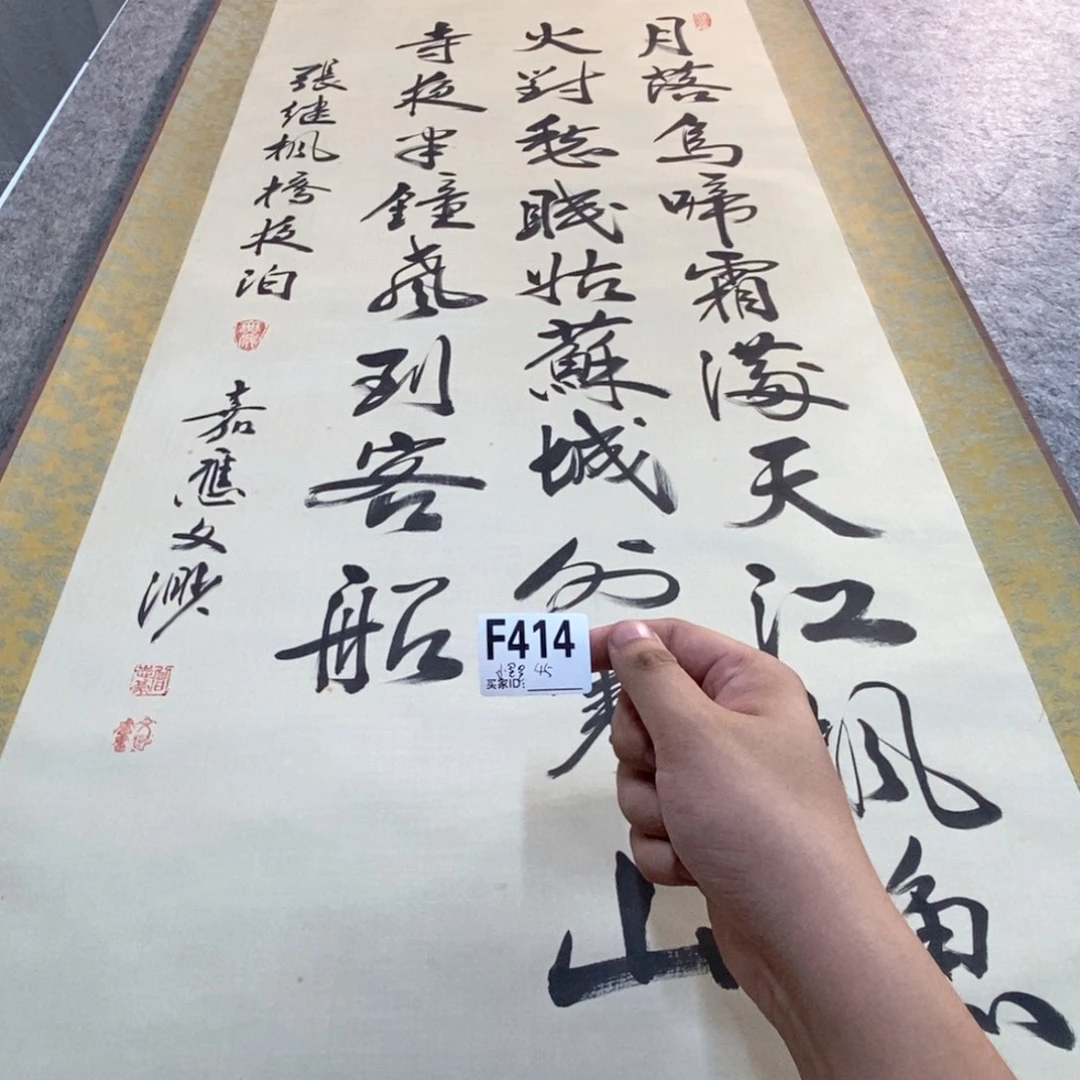 月落烏啼霜滿天江枫漁
火對愁眠姑蘇城外寒山
寺夜半鐘聲到客船
張继枫橋夜泊
嘉應文
F414
45
买家ID: